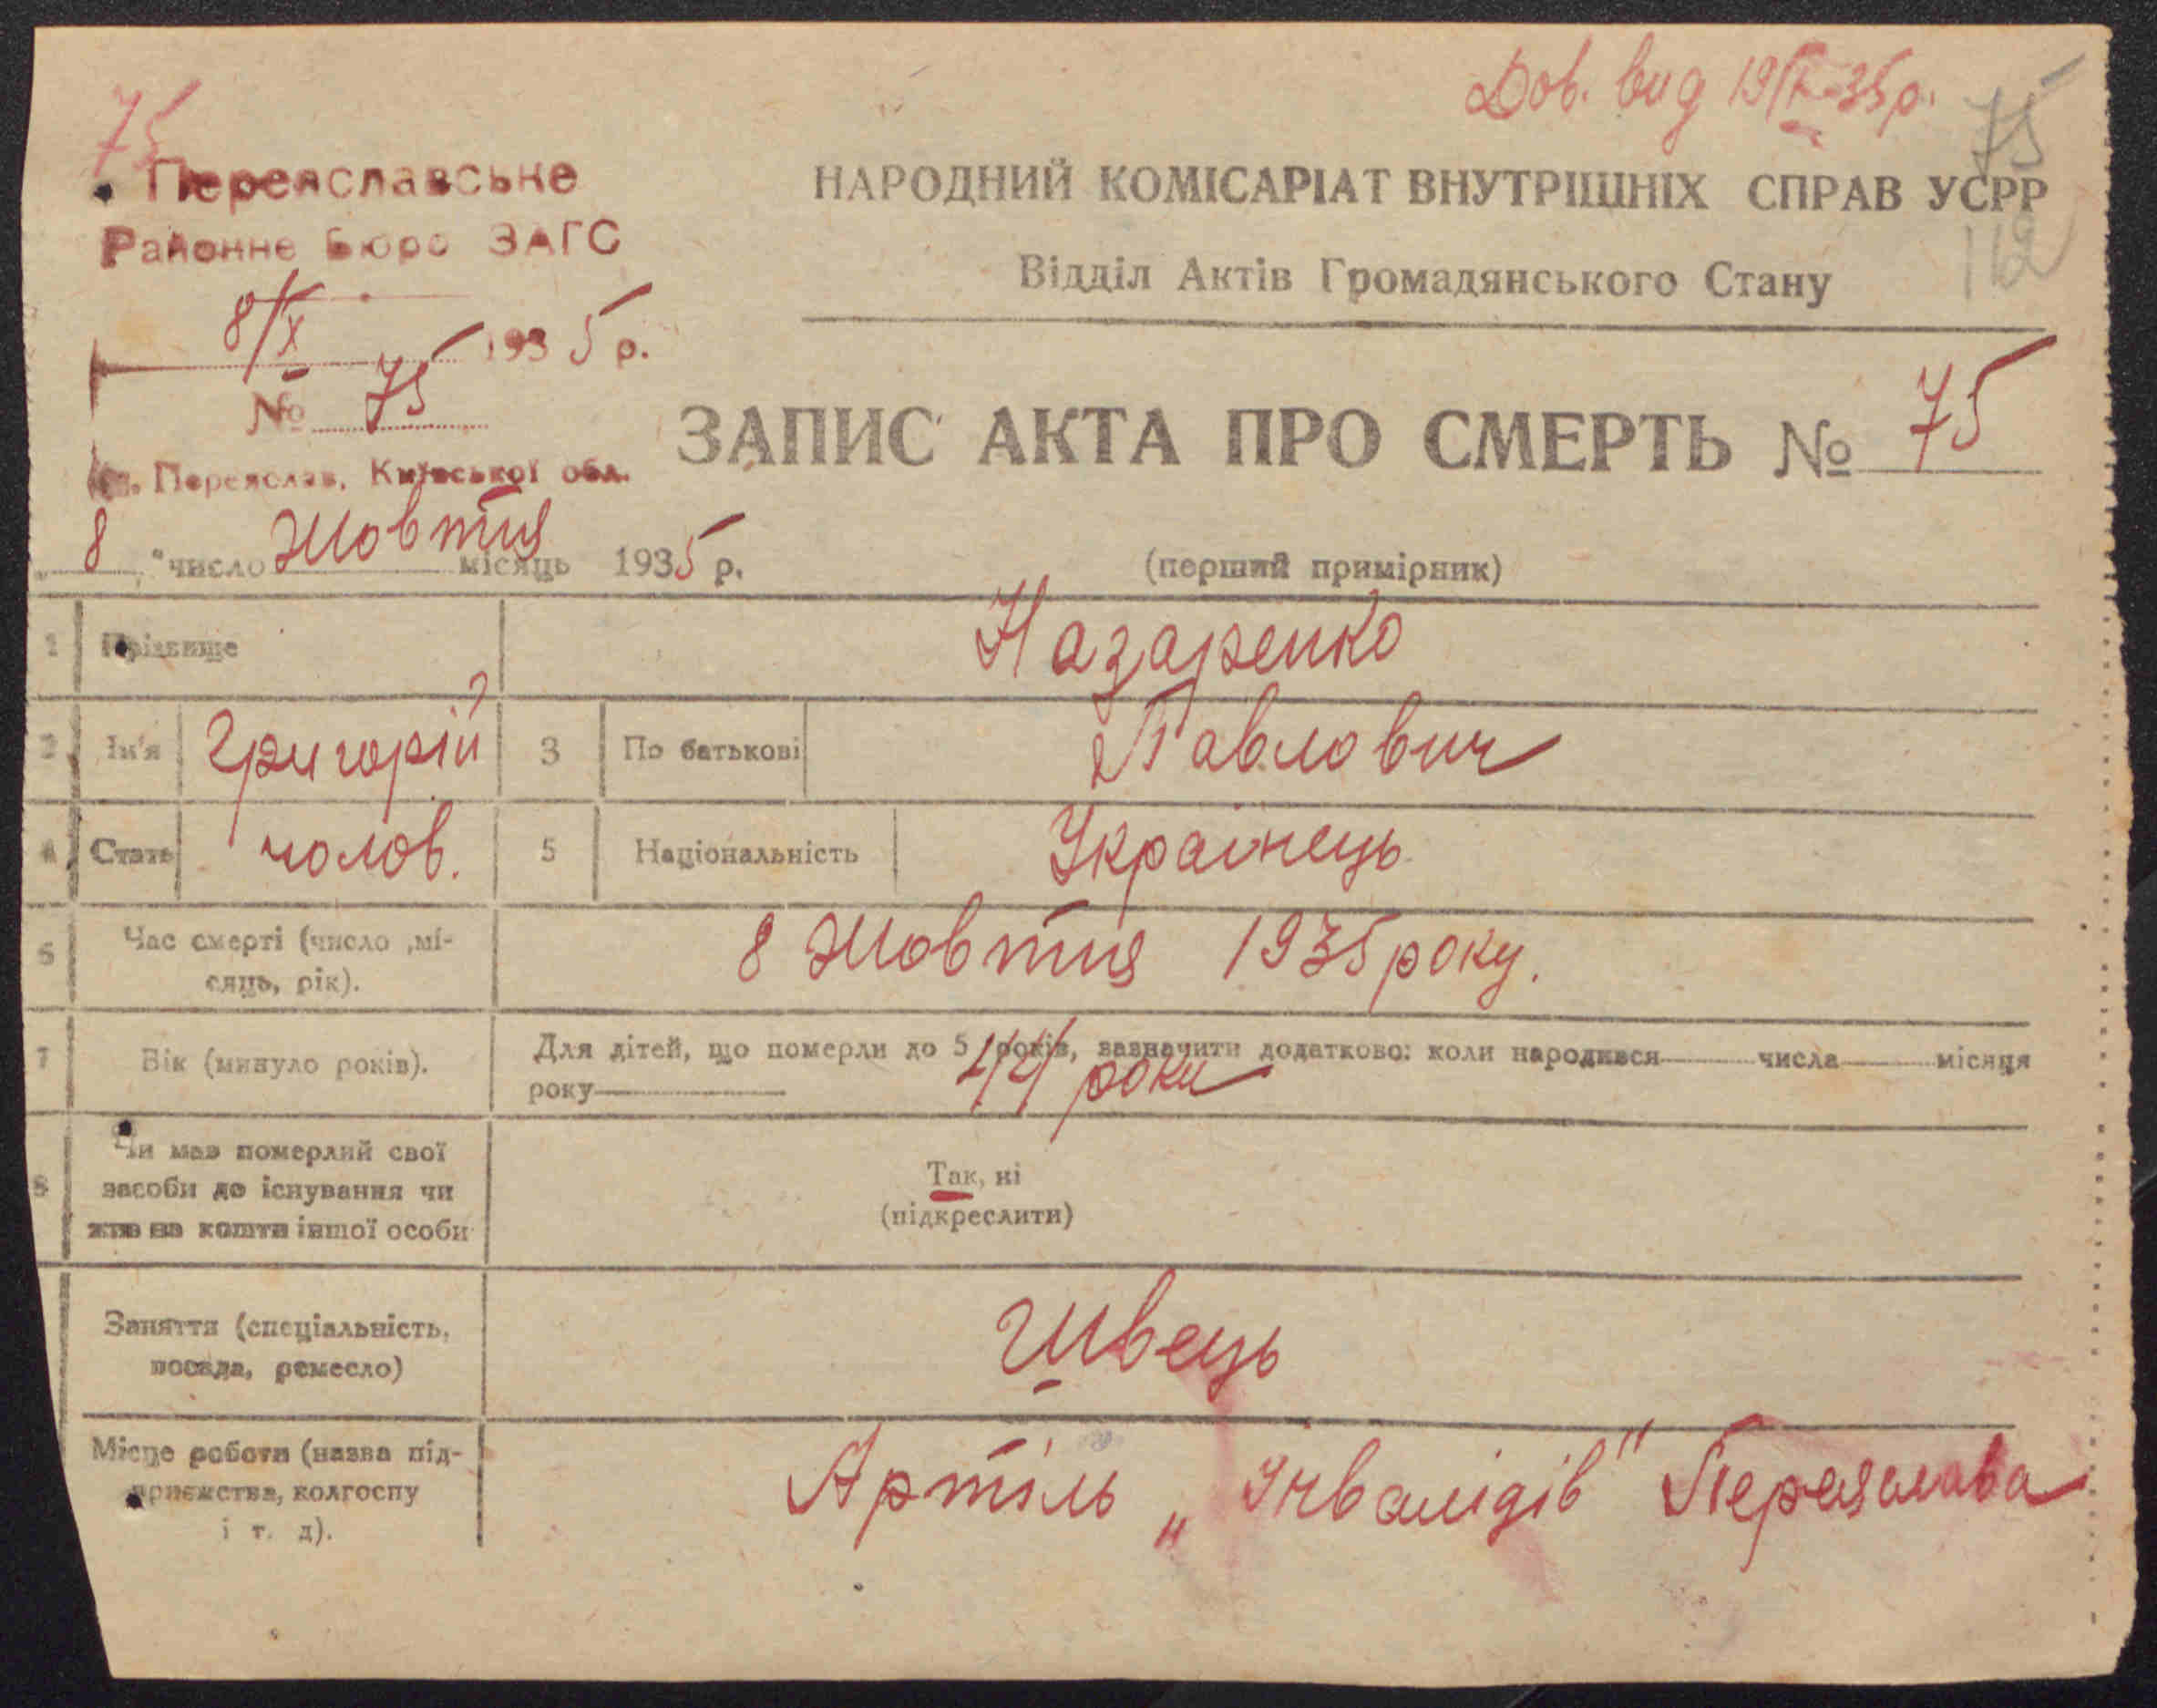 Дов. вид 19/X-35р.
75
75
112
Переяславське
Районне Бюро ЗАГС
8/X 1935 р.
№ 75
м. Переяслав, Київської обл.
НАРОДНИЙ КОМІСАРІАТ ВНУТРІШНІХ СПРАВ УСРР
Відділ Актів Громадянського Стану
ЗАПИС АКТА ПРО СМЕРТЬ № 75
„8" число Жовтня місяць 1935 р.
(перший примірник)
1 Прізвище Назаренко
2 Ім'я Григорій 3 По батькові Павлович
4 Стать чолов. 5 Національність Українець
6 Час смерті (число ,мі-
сяць, рік). 8 Жовтня 1935 року.
7 Вік (минуло років). Для дітей, що померли до 5 років, зазначити додатково: коли народився числа місяця
року роки
8 Чи мав померлий свої
засоби до існування чи
жив на кошти іншої особи
Так, ні
(підкреслити)
Заняття (спеціальність,
посада, ремесло) Швець
Місце роботи (назва під-
приємства, колгоспу
і т. д). Артіль „Інвалідів" Переяслава